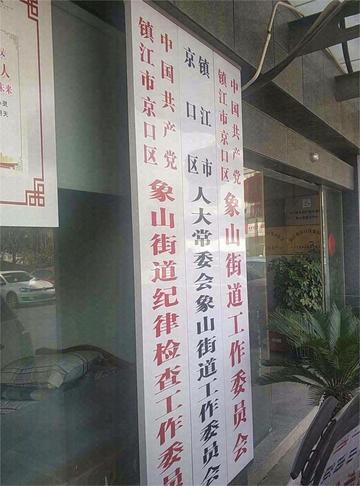 中国共产党
镇江市京口区
象山街道工作委员会
镇江市
京口区
人大常委会象山街道工作委员会
中国共产党
镇江市京口区
象山街道纪律检查工作委员